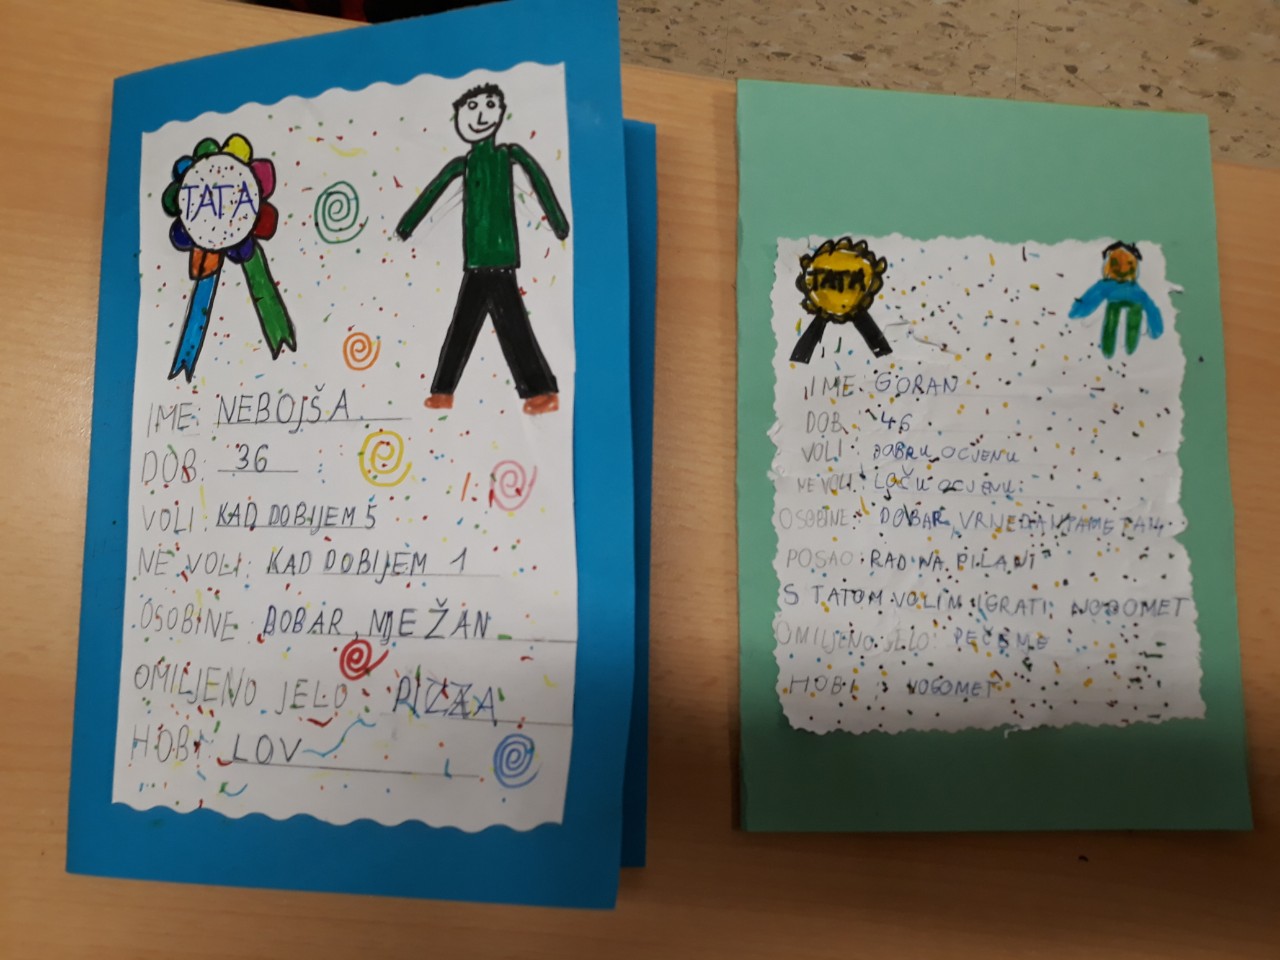 TATA
IME: NEBOJŠA
DOB: 36
VOLI: KAD DOBIJEM 5
NE VOLI: KAD DOBIJEM 1
OSOBINE: DOBAR, NJEŽAN
OMILJENO JELO: PIZZA
HOBI: LOV
TATA
IME: GORAN
DOB: 46
VOLI: DOBRU OCJENU
NE VOLI: LOŠU OCJENU
OSOBINE: DOBAR, VRIJEDAN, PAMETAN
POSAO: RAD NA PILANI
S TATOM VOLIM IGRATI: NOGOMET
OMILJENO JELO: PEČENJE
HOBI: NOGOMET